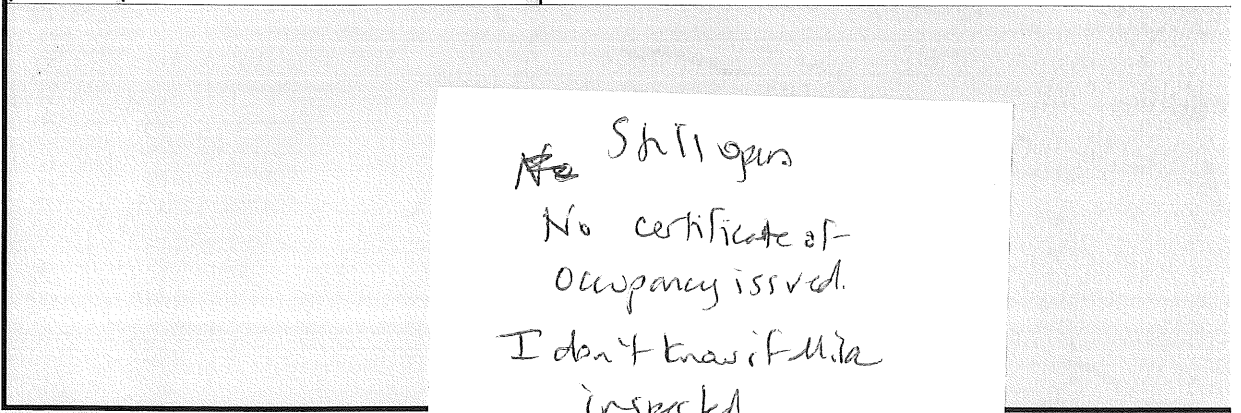 Still open
No certificate of
Occupancy issued.
I don't know if Mike
inspected